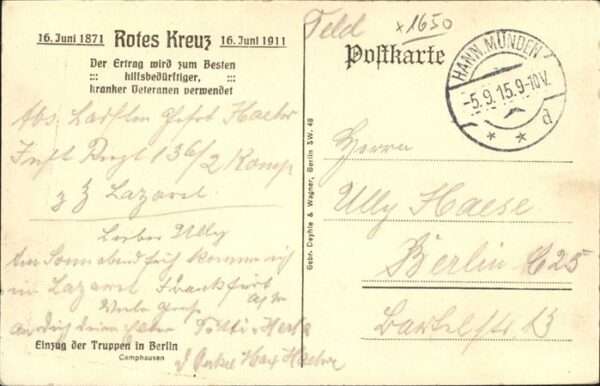 16. Juni 1871 Rotes Kreuz 16. Juni 1911
Der Ertrag wird zum Besten
::: hilfsbedürftiger, :::
kranker Veteranen verwendet
Feld
x1650
Postkarte
HANN. MÜNDEN
-5.9.15.9-10V.
* * d
Abs.
Inft Regt 136/2 Komp
z Z Lazaret
Lieber Ully
Am Sonnabend früh komme ich
in Lazaret Frankfurt
a/M
Viele Grüße
Einzug der Truppen in Berlin
Camphausen
Gebr. Deyhle & Wagner, Berlin SW. 48
Herrn
Ully Haese
Berlin C 25
Bartelstr 13